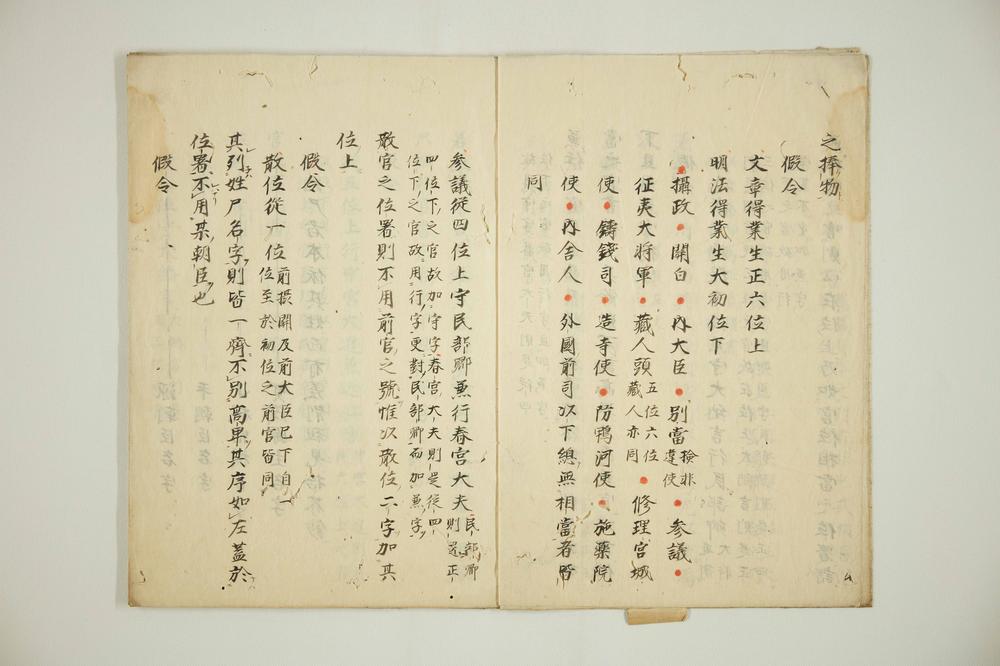 之捧物
假令
文章得業生正六位上
明法得業生大初位下
攝政・関白・內大臣・別當檢非違使・參議・
征夷大将軍・藏人頭五位六位藏人亦同・修理宮城
使・鑄錢司・造寺使・防鴨河使・施藥院
使・內舍人・外國前司以下總無相當者皆
同
參議從四位上守民部卿兼行春宮大夫民部卿則是正
四位下之官故加守字春宮大夫則是從四
位下之官故用行字更對民部卿而加兼字
散官之位署則不用前官之號惟以散位二字加其
位上
假令
散位從一位前摂關及前大臣已下自一位至於初位之前官皆同
其列姓尸名字則皆一齊不別高卑其序如左蓋於
位署不用某朝臣也
假令